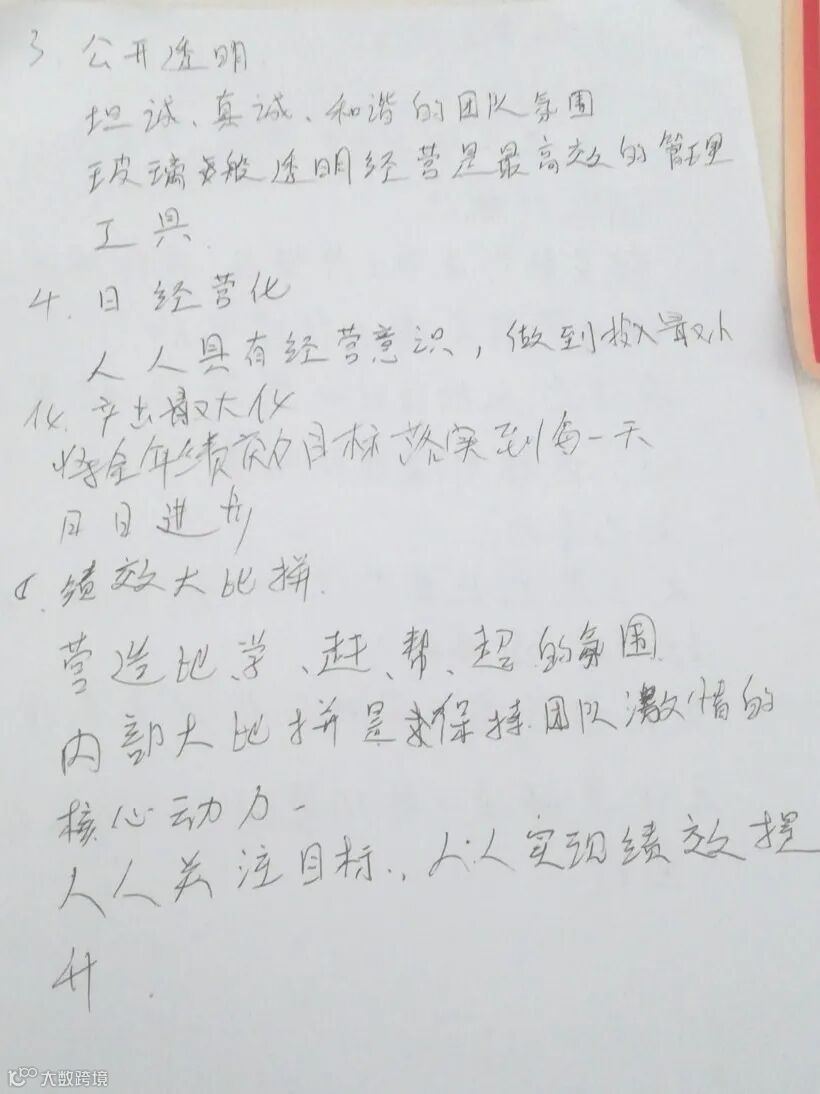 3 公开透明
坦诚、真诚、和谐的团队氛围
玻璃般透明经营是最高效的管理
工具.
4. 日经营化
人人具有经营意识,做到投入最小
化.产出最大化
将全年绩效目标落实到每一天
日日进步
5. 绩效大比拼.
营造比、学、赶、帮、超的氛围.
内部大比拼是保持团队激情的
核心动力-
人人关注目标.,人人实现绩效提
升.
大数跨境